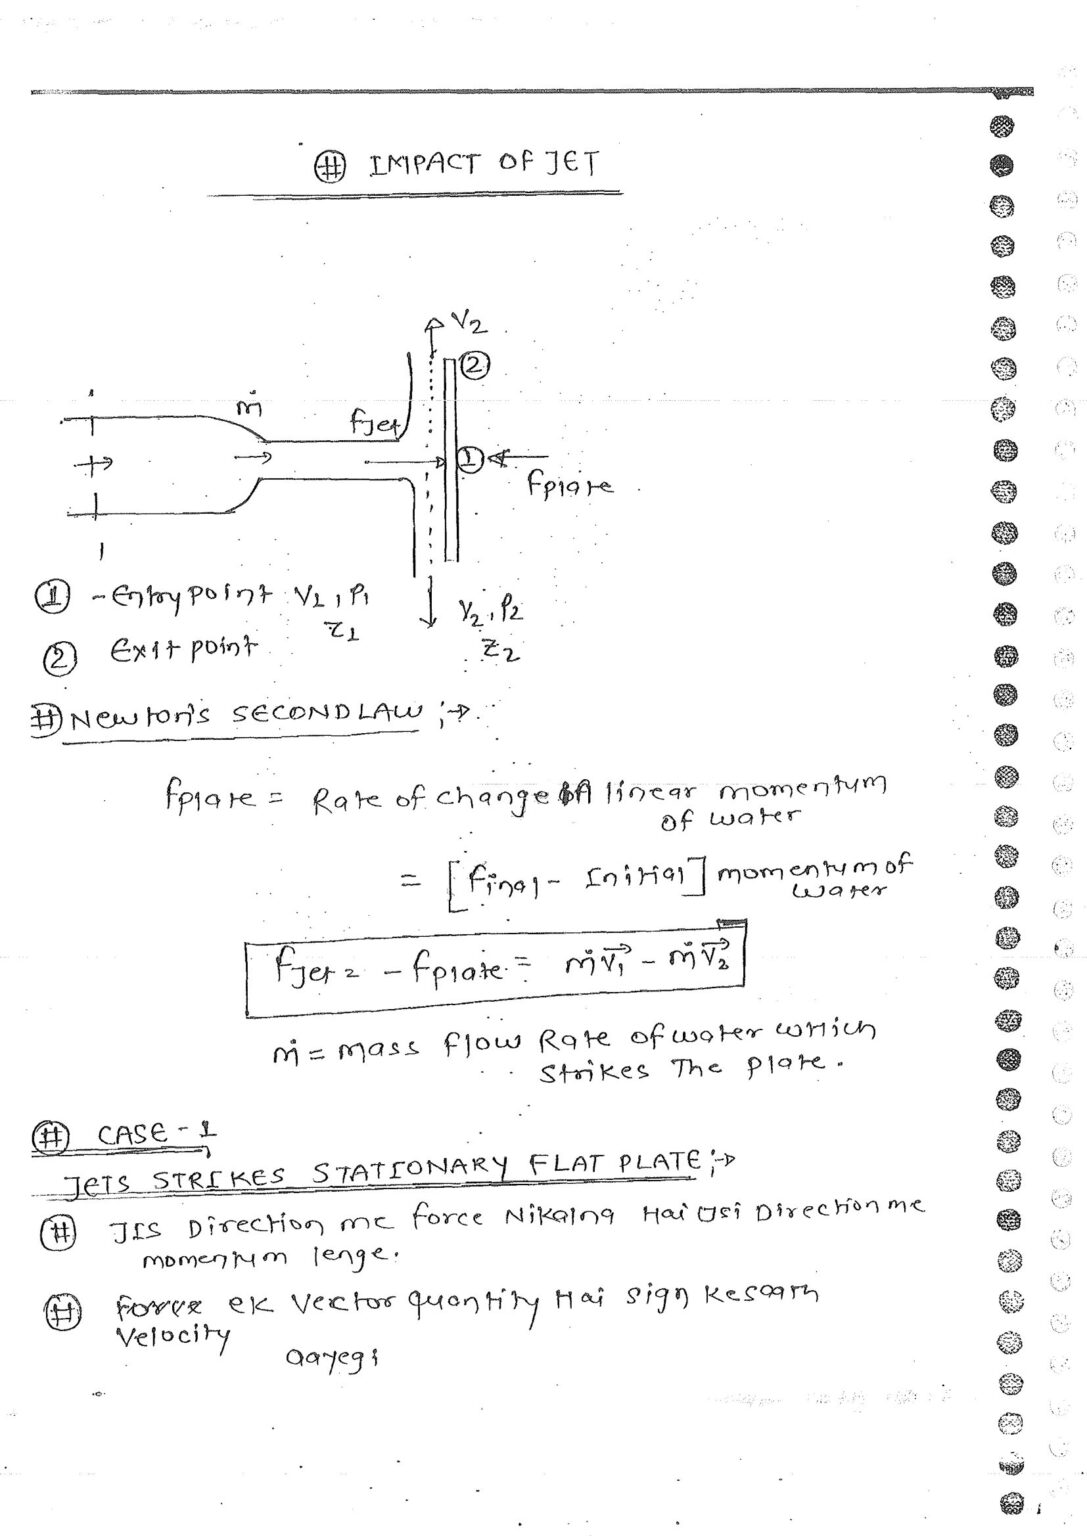 # IMPACT OF JET
V2
2
ṁ
fjet
1
fplate
1
1
① - Entry point V1, P1
Z1
V2, P2
Z2
② Exit point
# Newton's SECOND LAW ;→
fplate = Rate of change of linear momentum
of water
= [final - Initial] momentum of
water
fjet = - fplate = ṁV⃗1 - ṁV⃗2
ṁ = mass flow Rate of water which
strikes The plate.
# CASE - 1
JETS STRIKES STATIONARY FLAT PLATE ;→
# JIS Direction me force Nikalna Hai Usi Direction me
momentum lenge.
# Force ek Vector quantity Hai sign Kesaath
Velocity
aayegi